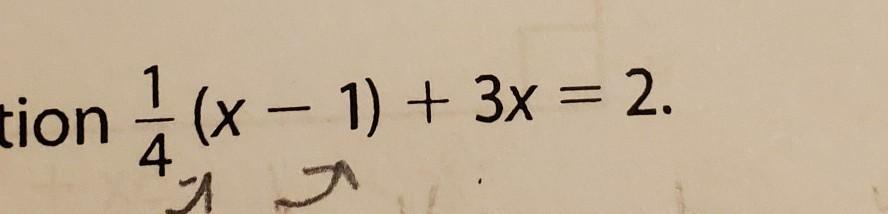 tion 1/4 (x − 1) + 3x = 2.